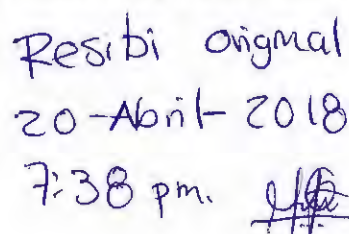 Resibi original
20-Abril-2018
7:38 pm.